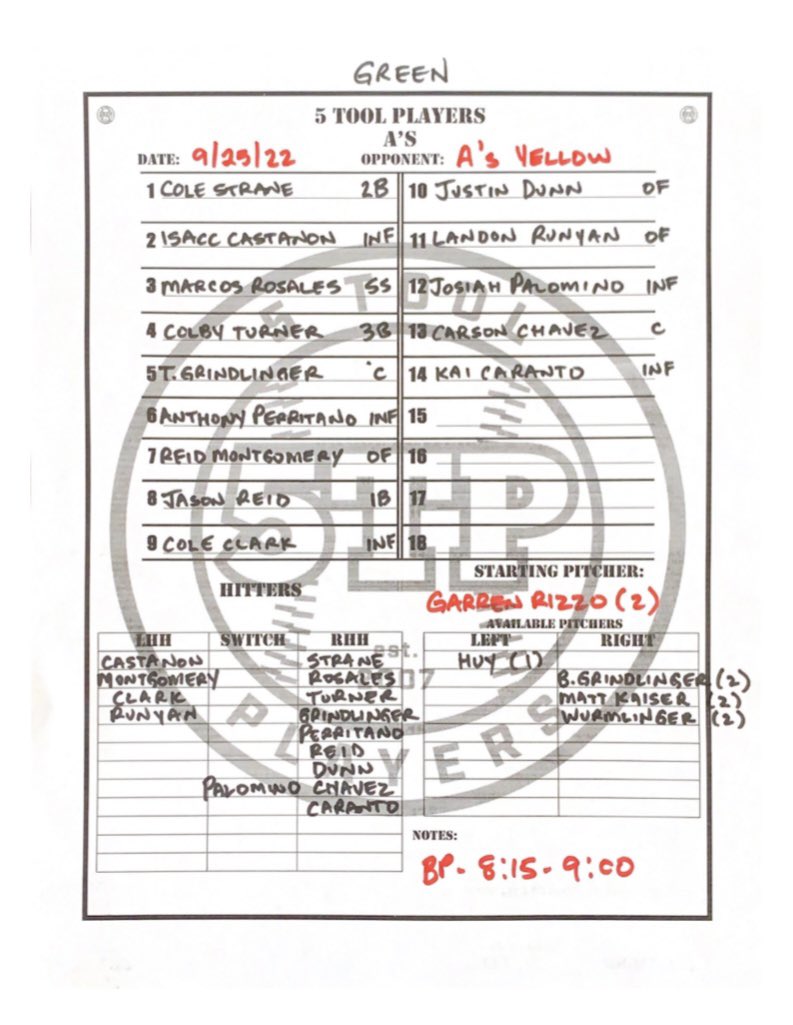 GREEN
5 TOOL PLAYERS
A'S
DATE: 9/25/22 OPPONENT: A's YELLOW
1 COLE STRANE 2B
2 ISACC CASTANON INF
3 MARCOS ROSALES SS
4 COLBY TURNER 3B
5 T. GRINDLINGER C
6 ANTHONY PERRITANO INF
7 REID MONTGOMERY OF
8 JASON REID 1B
9 COLE CLARK INF
10 JUSTIN DUNN OF
11 LANDON RUNYAN OF
12 JOSIAH PALOMINO INF
13 CARSON CHAVEZ C
14 KAI CARANTO INF
15
16
17
18
HITTERS
LHH SWITCH RHH
CASTANON STRANE
MONTGOMERY ROSALES
CLARK TURNER
RUNYAN GRINDLINGER
PERRITANO
REID
DUNN
PALOMINO CHAVEZ
CARANTO
STARTING PITCHER:
GARREN RIZZO (2)
AVAILABLE PITCHERS
LEFT RIGHT
HUY (1)
B. GRINDLINGER (2)
MATT KAISER (2)
WURMLINGER (2)
NOTES:
BP - 8:15 - 9:00
5 TOOL
5TP
est.
2007
PLAYERS